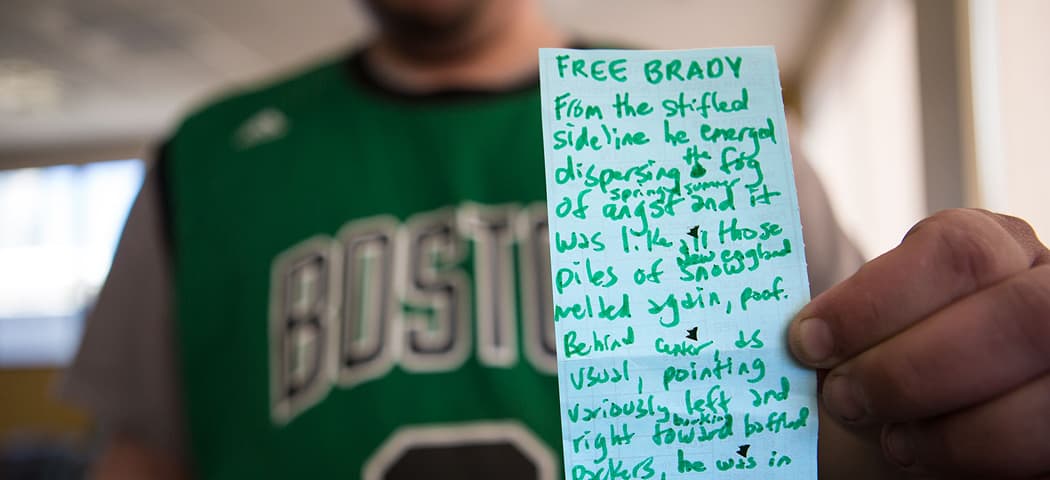 BOSTO
FREE BRADY
From the stifled
sideline he emerged
dispersing the fog
spring summer
of angst and it
was like all those
New England
piles of snow
melted again, poof.
Behind center, as
usual, pointing
variously left and
right toward baffled
packers, he was in